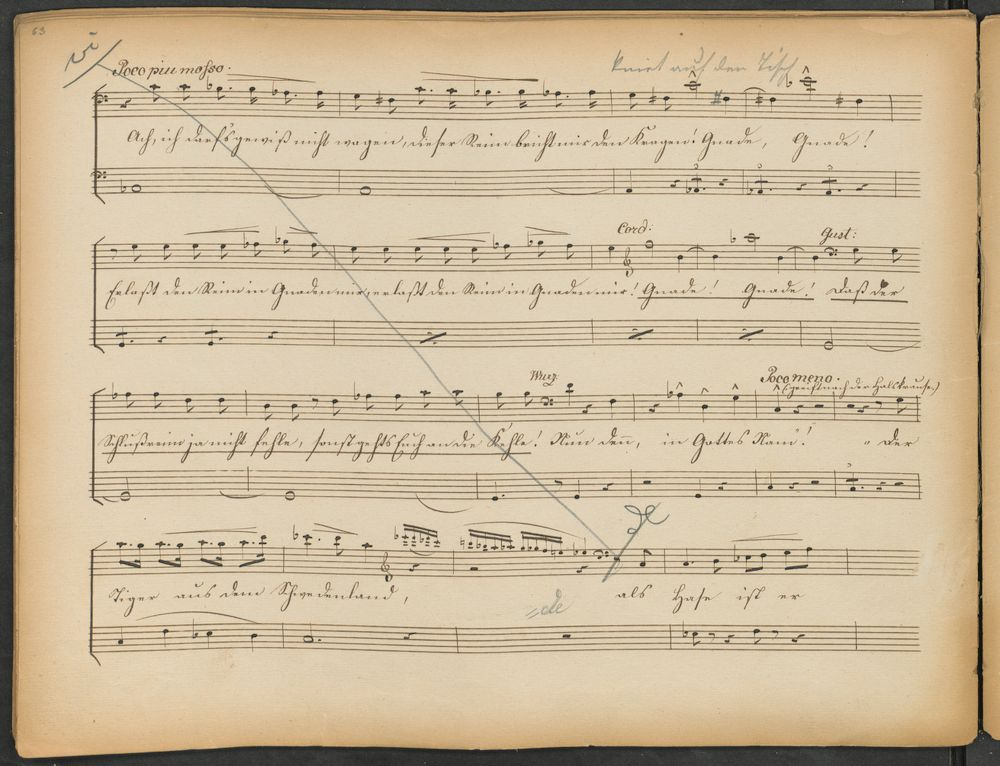 63
vi
Poco piu mosso.
kniet auf den Tisch
Ach, ich darf's gewiß nicht wagen, dieser Reim bricht mir den Kragen! Gnade, Gnade!
Cord: Gust:
Erlaßt den Reim in Gnaden mir, erlaßt den Reim in Gnaden mir! Gnade! Gnade! Daß der
Wurz
Poco meno.
(greift nach der Halskrause)
Schlußreim ja nicht fehle, sonst geht's Euch an die Kehle! Nun denn, in Gottes Nam'! " Der
de
Tiger aus dem Schwedenland, als Hase ist er
=de